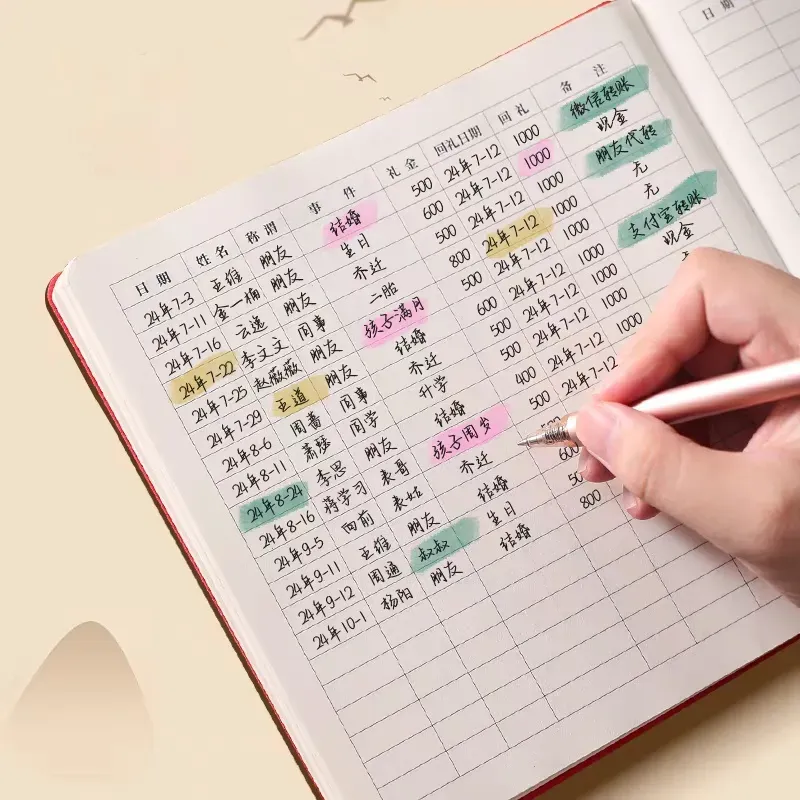 日期 姓名 称谓 事件 礼金 回礼日期 回礼 备注
24年7-3 王维 朋友 结婚 500 24年7-12 1000 微信转账
24年7-11 金一楠 朋友 生日 600 24年7-12 1000 现金
24年7-16 云逸 朋友 乔迁 500 24年7-12 1000 朋友代转
24年7-22 李文文 同事 二胎 800 24年7-12 1000 无
24年7-25 赵薇薇 朋友 孩子满月 500 24年7-12 1000 无
24年7-29 王道 朋友 结婚 600 24年7-12 1000 支付宝转账
24年8-6 周 同事 乔迁 500 24年7-12 1000 现金
24年8-11 萧强 同学 升学 400 24年7-12 1000
24年8-24 李思 朋友 结婚 500 24年7-12
24年8-16 蒋学习 表哥 孩子周岁
24年9-5 向前 表姑 乔迁 600
24年9-11 王维 朋友 结婚
24年9-12 周通 叔叔 生日 800
24年10-1 杨阳 朋友 结婚
日期